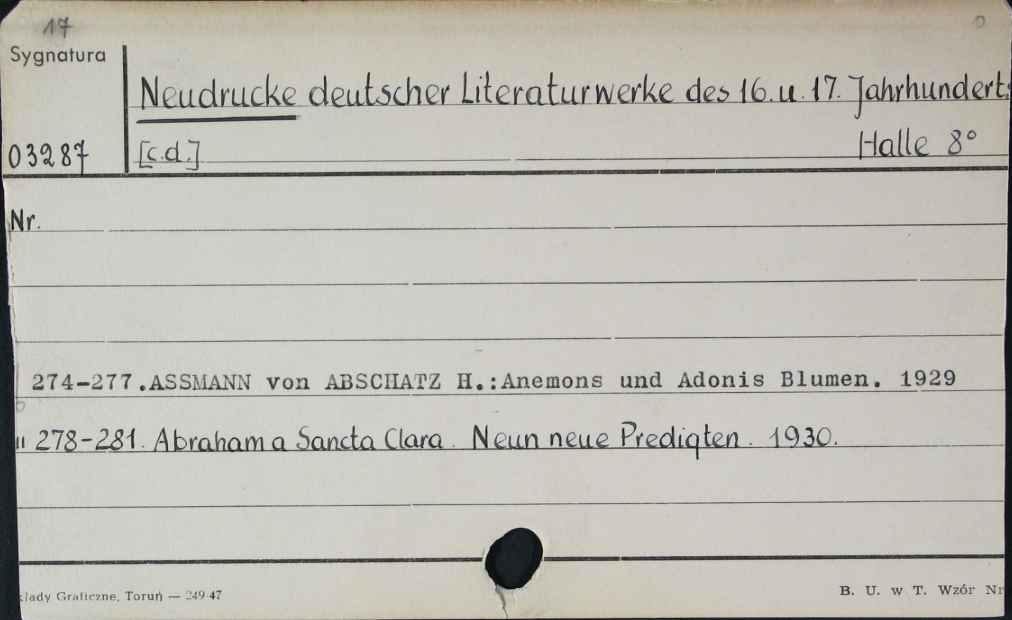 17
Sygnatura
Neudrucke deutscher Literaturwerke des 16. u. 17. Jahrhunderts
03287 [c.d.] Halle 8°
Nr.
274-277.ASSMANN von ABSCHATZ H.:Anemons und Adonis Blumen. 1929
" 278-281. Abraham a Sancta Clara. Neun neue Predigten. 1930.
łady Graficzne, Toruń — 249-47
B. U. w T. Wzór Nr